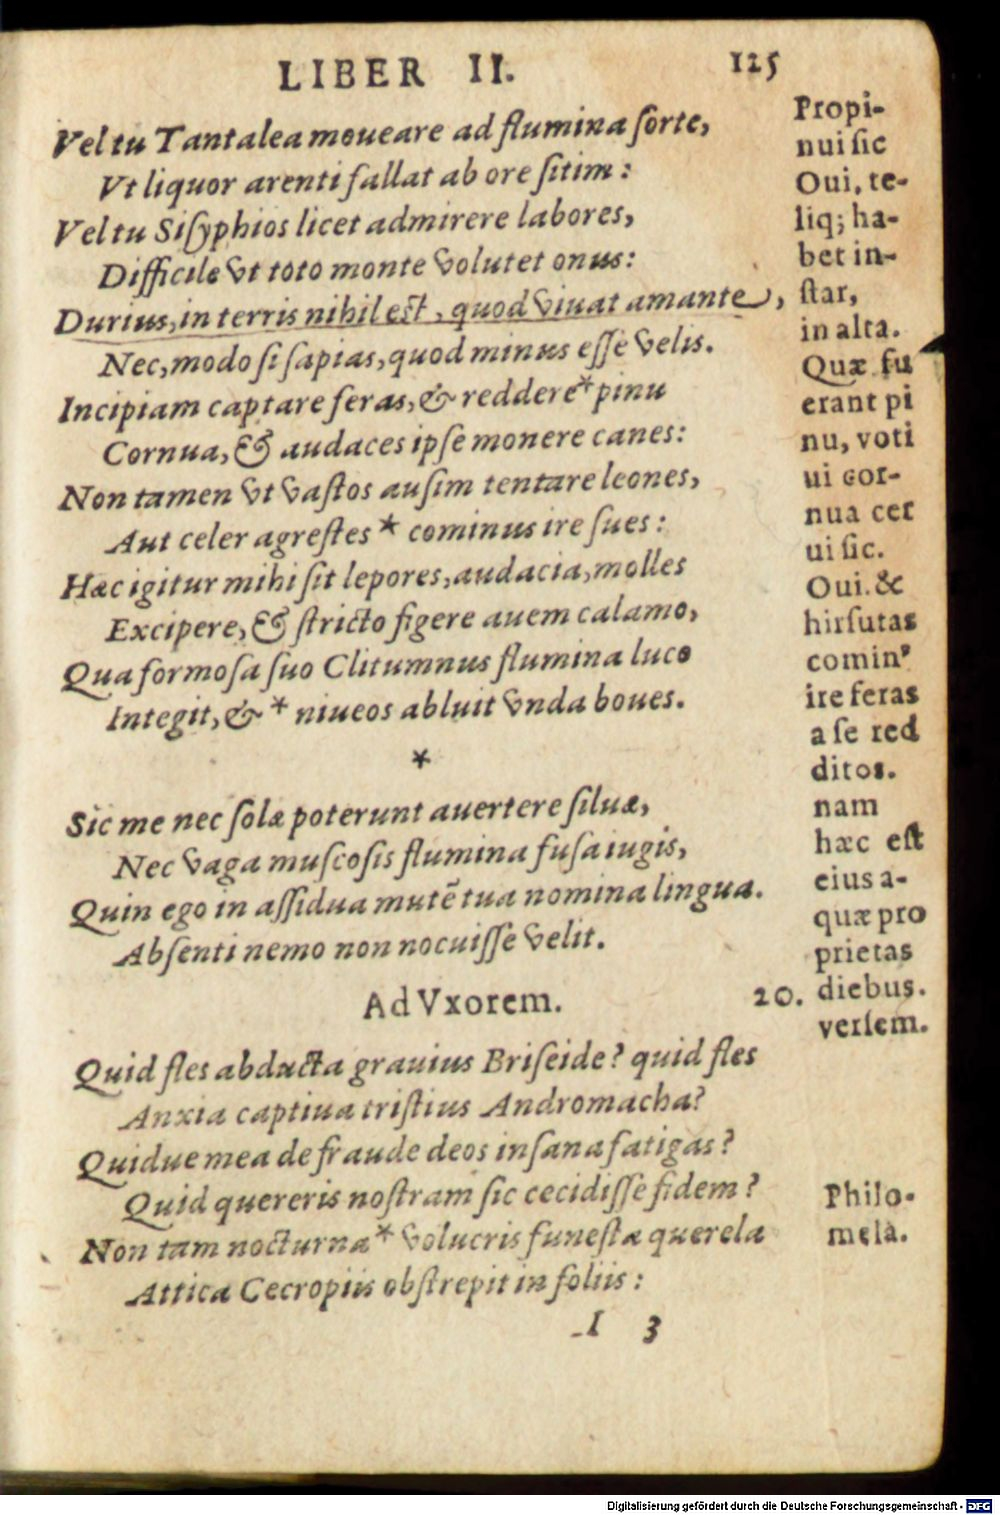 LIBER II. 125
Vel tu Tantalea moueare ad flumina sorte,
Vt liquor arenti fallat ab ore sitim:
Vel tu Sisyphios licet admirere labores,
Difficile vt toto monte volutet onus:
Durius, in terris nihil est, quod viuat amante,
Nec, modo si sapias, quod minus esse velis.
Incipiam captare feras, & reddere * pinu
Cornua, & audaces ipse monere canes:
Non tamen vt vastos ausim tentare leones,
Aut celer agrestes * cominus ire sues:
Hæc igitur mihi sit lepores, audacia, molles
Excipere, & stricto figere auem calamo,
Qua formosa suo Clitumnus flumina luco
Integit, & * niueos abluit vnda boues.
*
Sic me nec solæ poterunt auertere siluæ,
Nec vaga muscosis flumina fusa iugis,
Quin ego in assidua mutē tua nomina lingua.
Absenti nemo non nocuisse velit.
Ad Vxorem. 20.
Quid fles abducta grauius Briseide? quid fles
Anxia captiua tristius Andromacha?
Quidue mea de fraude deos insana fatigas?
Quid quereris nostram sic cecidisse fidem?
Non tam nocturna * volucris funesta querela
Attica Cecropiis obstrepit in foliis:
I 3
Propi-
nui sic
Oui, te-
liq; ha-
bet in-
star,
in alta.
Quæ fu
erant pi
nu, voti
ui cor-
nua cer
ui sic.
Oui. &
hirsutas
comin⁹
ire feras
a se red
ditos.
nam
hæc est
eius a-
quæ pro
prietas
diebus.
versem.
Philo-
mela.
Digitalisierung gefördert durch die Deutsche Forschungsgemeinschaft - DFG